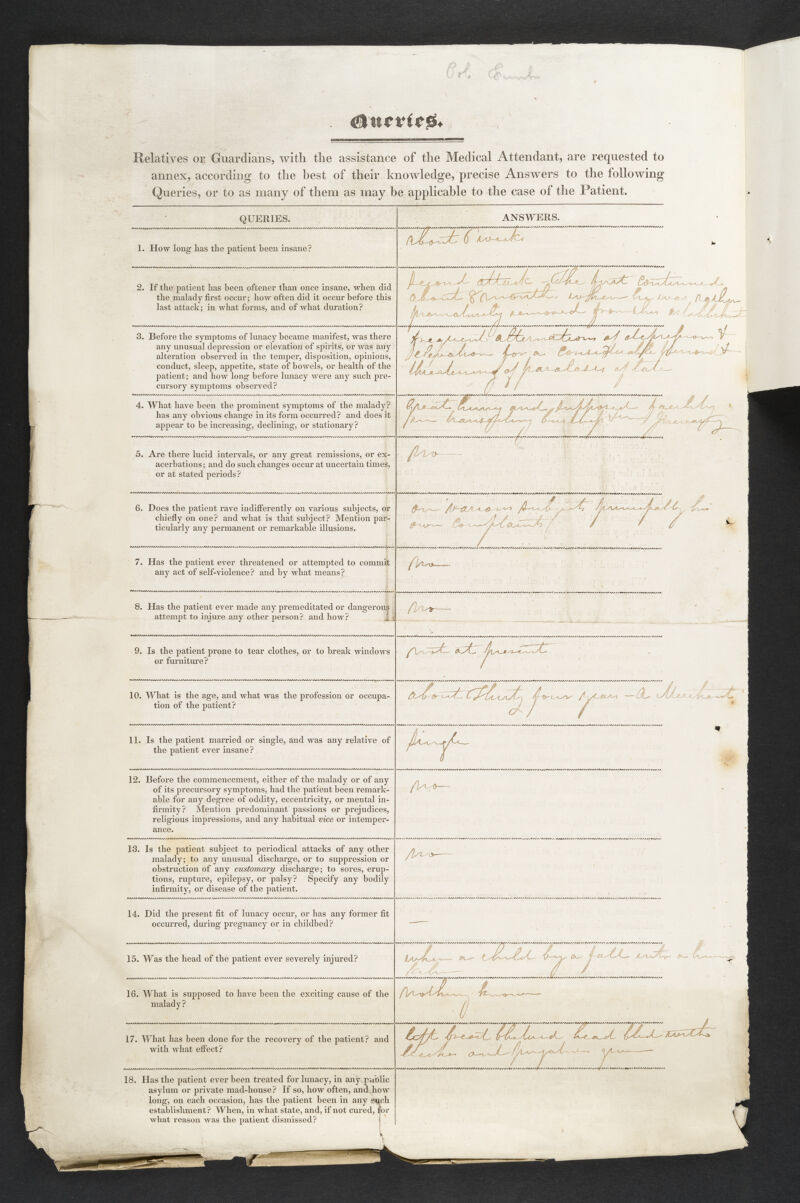 Queries.
Relatives or Guardians, with the assistance of the Medical Attendant, are requested to
annex, according to the best of their knowledge, precise Answers to the following
Queries, or to as many of them as may be applicable to the case of the Patient.
QUERIES.
ANSWERS.
1. How long has the patient been insane?
About 6 weeks
2. If the patient has been oftener than once insane, when did
the malady first occur; how often did it occur before this
last attack; in what forms, and of what duration?
Second attack - The first continued
about 8 months when he was rather
prematurely removed from this establishment
3. Before the symptoms of lunacy became manifest, was there
any unusual depression or elevation of spirits, or was any
alteration observed in the temper, disposition, opinions,
conduct, sleep, appetite, state of bowels, or health of the
patient; and how long before lunacy were any such pre-
cursory symptoms observed?
frequent alternations of depression &
elevation for a considerable period &
threatening of paralasis of late
4. What have been the prominent symptoms of the malady?
has any obvious change in its form occurred? and does it
appear to be increasing, declining, or stationary?
Great hurry and supposed facility
in transacting business
5. Are there lucid intervals, or any great remissions, or ex-
acerbations; and do such changes occur at uncertain times,
or at stated periods?
No
6. Does the patient rave indifferently on various subjects, or
chiefly on one? and what is that subject? Mention par-
ticularly any permanent or remarkable illusions.
on various subjects principally his
own complaints
7. Has the patient ever threatened or attempted to commit
any act of self-violence? and by what means?
No
8. Has the patient ever made any premeditated or dangerous
attempt to injure any other person? and how?
No
9. Is the patient prone to tear clothes, or to break windows
or furniture?
not at present
10. What is the age, and what was the profession or occupa-
tion of the patient?
about Thirty four years - a Merchant
11. Is the patient married or single, and was any relative of
the patient ever insane?
Single
12. Before the commencement, either of the malady or of any
of its precursory symptoms, had the patient been remark-
able for any degree of oddity, eccentricity, or mental in-
firmity? Mention predominant passions or prejudices,
religious impressions, and any habitual vice or intemper-
ance.
No
13. Is the patient subject to periodical attacks of any other
malady; to any unusual discharge, or to suppression or
obstruction of any customary discharge; to sores, erup-
tions, rupture, epilepsy, or palsy? Specify any bodily
infirmity, or disease of the patient.
No
14. Did the present fit of lunacy occur, or has any former fit
occurred, during pregnancy or in childbed?
—
15. Was the head of the patient ever severely injured?
when a child by a fall into a
16. What is supposed to have been the exciting cause of the
malady?
Nothing known
17. What has been done for the recovery of the patient? and
with what effect?
head bled with
leeches and purgatives given
18. Has the patient ever been treated for lunacy, in any public
asylum or private mad-house? If so, how often, and how
long, on each occasion, has the patient been in any such
establishment? When, in what state, and, if not cured, for
what reason was the patient dismissed?